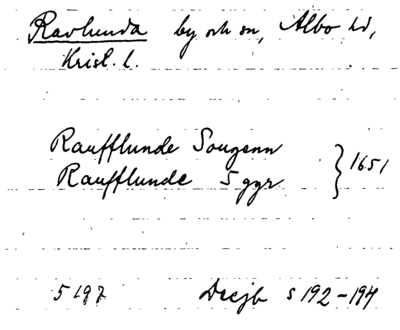 Ravlunda by och sn, Albo hd,
Krist. l.
Raufflunde Sougenn
Raufflunde 5 ggr } 1651
5197 Decjb s 192-194